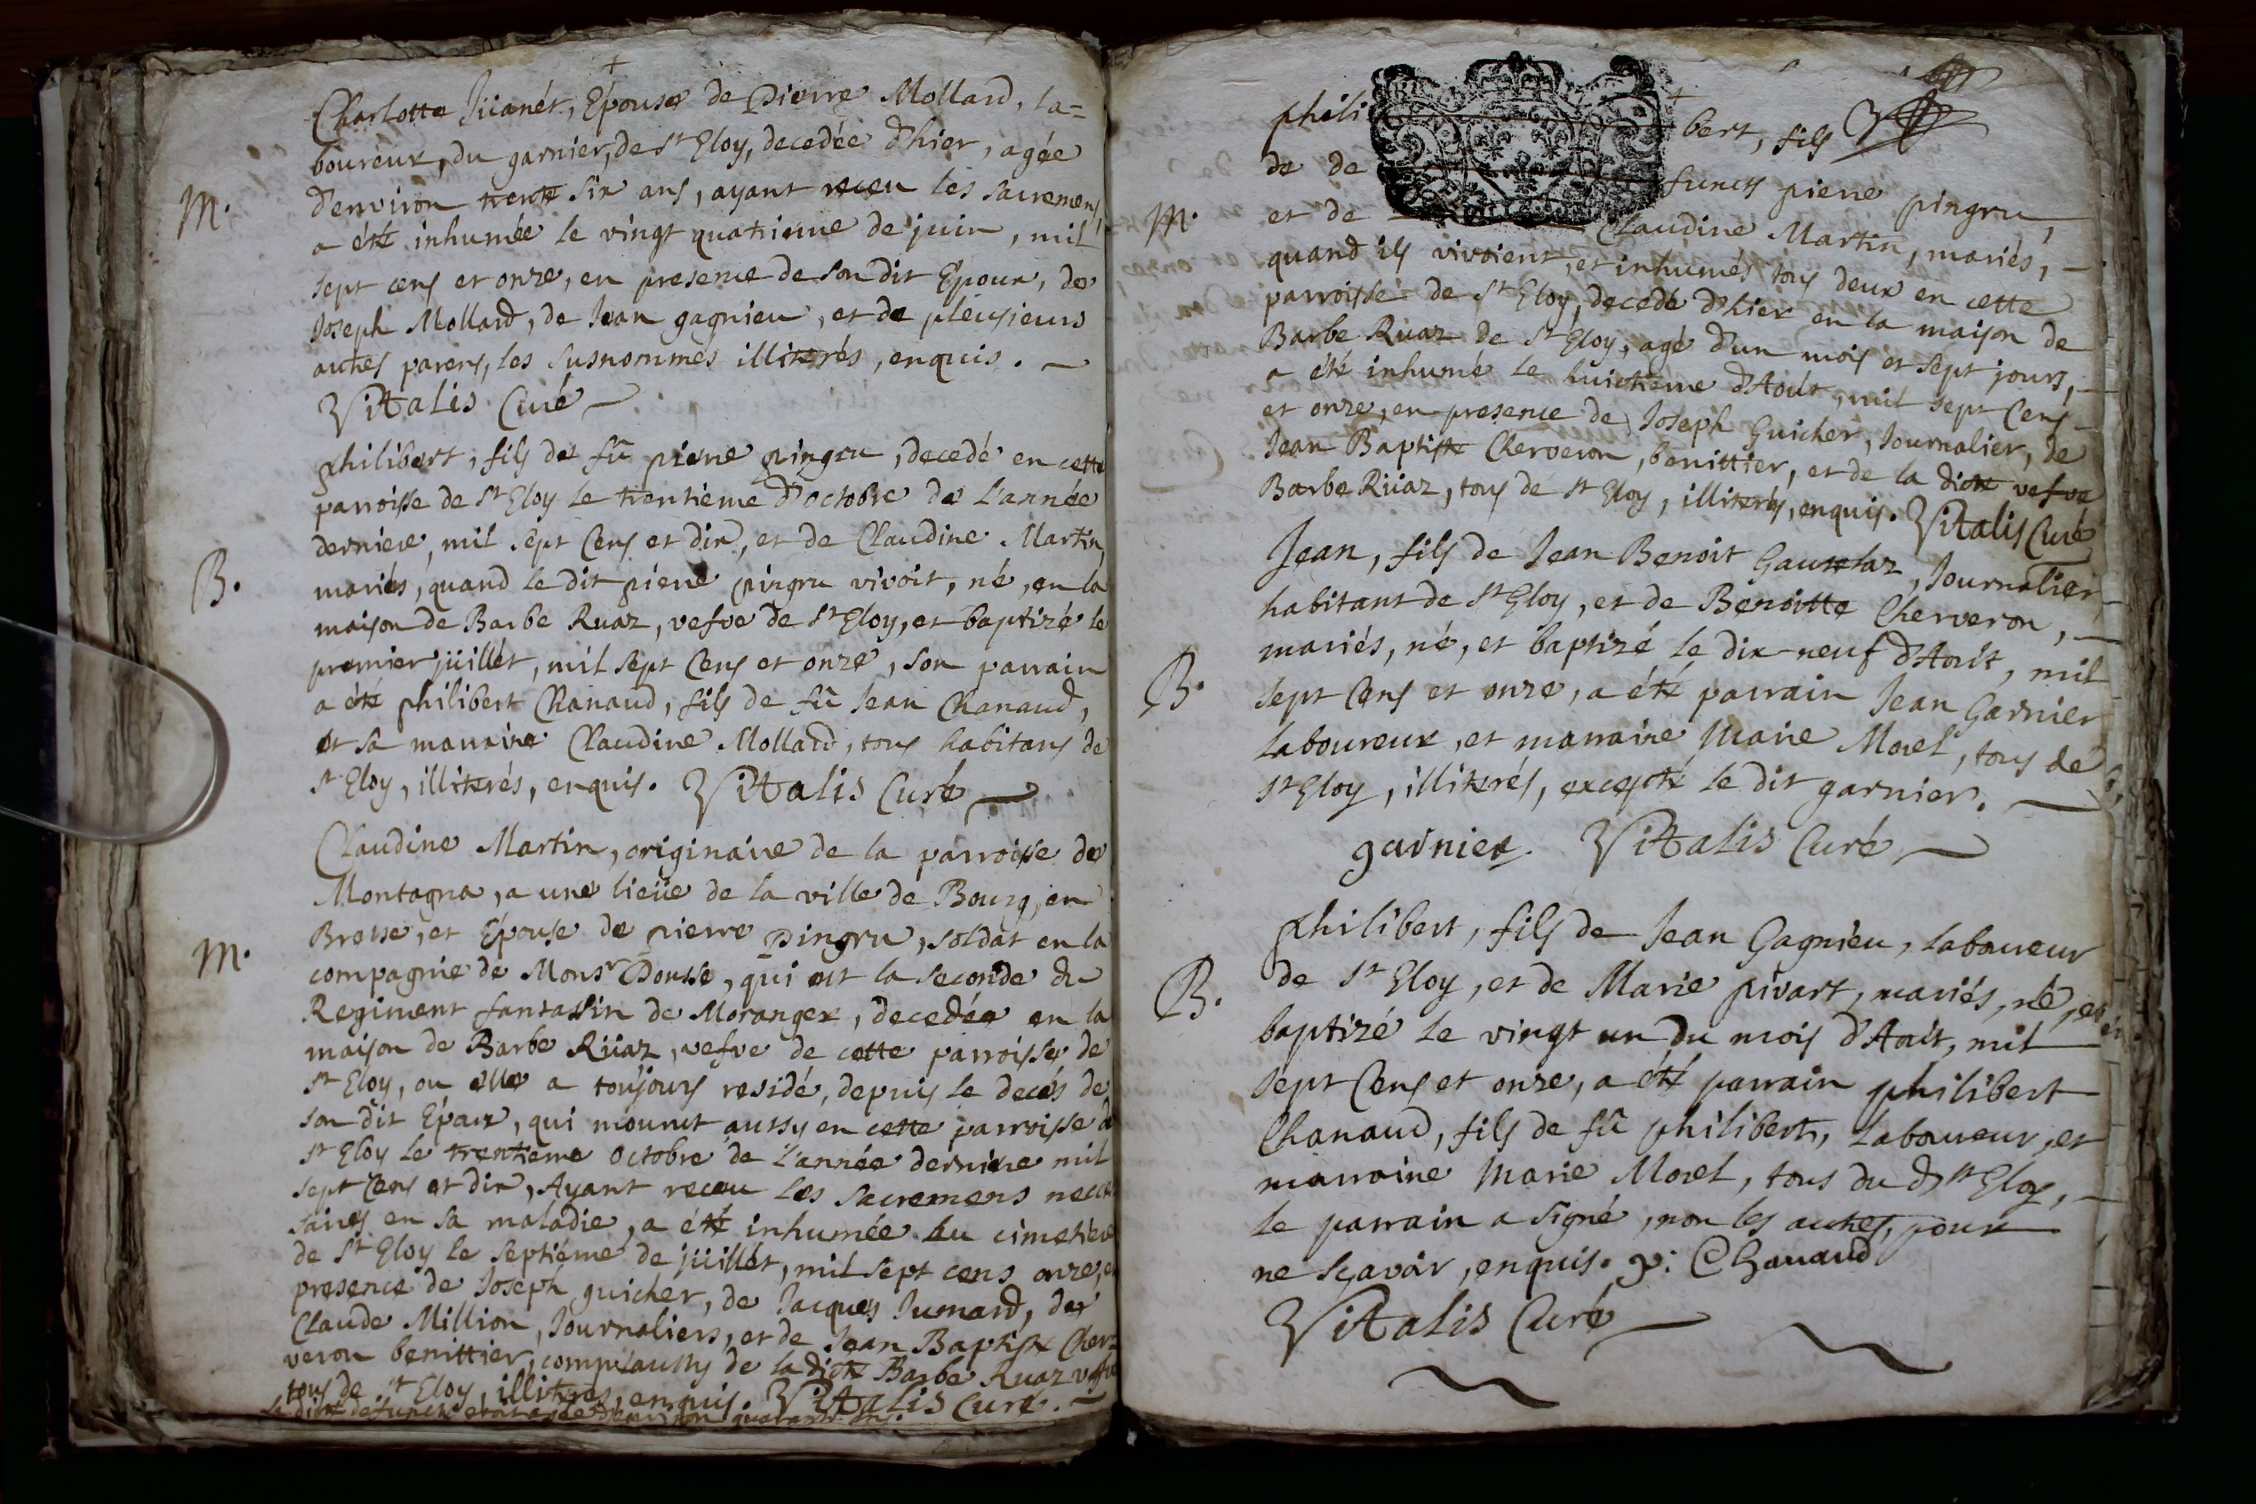 Charlotte Jüanét, Epouse de Pierre Mollard, la=
boureur, du garnier, de St Eloy, decedée d'hier, agée
M. d'environ trente six ans, ayant receu les sacremens,
a été inhumée le vingt quatrieme de juin, mil
sept cens et onze, en presence de son dit Epoux, de
Joseph Mollard, de Jean gagnieu, et de pleusieurs
autres parens, les susnommés illiterés, enquis.
Vitalis Curé
philibert, fils de fû pierre pingru, decedé en cette
parroisse de St Eloy le trentième d'Octobre de L'année
derniere, mil sept Cens et dix, et de Claudine Martin
B. mariés, quand le dit pierre pingru vivoit, né, en la
maison de Barbe Ruaz, vefve de St Eloy, et baptizé le
premier jüillét, mil sept Cens et onze, son parrain
a été philibert Chanaud, fils de fû Jean Chanaud,
et sa marraine Claudine Mollard, tous habitans de
St Eloy, illiterés, enquis. Vitalis Curé
Claudine Martin, originaire de la parroisse de
Montagna, a une lieüe de la ville de Bourg, en
M. Bresse, et Epouse de pierre Pingru, soldat en la
compagnie de Monsr Dousse, qui est la seconde du
Regiment fantassin de Moranger, decedée en la
maison de Barbe Rüaz, vefve de cette parroisse de
St Eloy, ou elle a toûjours residé, depuis le decés de
son dit Epoux, qui mourut aussy en cette parroisse de
St Eloy le trentieme Octobre de L'année derniere mil
sept Cens et dix, Ayant receu les Sacremens neces
saires en sa maladie, a été inhumée au cimetiere
de St Eloy le septiéme de jüillét, mil sept cens onze, en
presence de Joseph guicher, de Jacques Jumard, de
Claude Million, Journaliers, et de Jean Baptiste Cher=
veron benittier, comme aussy de la dicte Barbe Ruaz vefve
tous de St Eloy, illiterés, enquis. Vitalis Curé.
la dicte defuncte etoit agée d'environ quarante ans.
phili bert, fils
de de functs pierre pingru,
M. et de Claudine Martin, mariés,
quand ils vivoient, et inhumés tous deux en cette
parroisse de St Eloy, decedé d'hier en la maison de
Barbe Ruaz de St Eloy, agé d'un mois et sept jours,
a été inhumé le huictieme d'Aoüt, mil sept Cens
et onze, en presence de Joseph Guicher, Journalier, de
Jean Baptiste Cherveron, benittier, et de la dicte vefve
Barbe Rüaz, tous de St Eloy, illiterés, enquis. Vitalis Curé
Jean, fils de Jean Benoit Gauthaz, Journalier
habitant de St Eloy, et de Benoitte Cherveron,
mariés, né, et baptizé le dix-neuf d'Aoüt, mil
B. sept Cens et onze, a été parrain Jean Garnier
laboureur, et marraine Marie Morel, tous de
St Eloy, illiterés, excepté le dit garnier.
garnier. Vitalis Curé
philibert, fils de Jean Gagnieu, laboureur
B. de St Eloy, et de Marie pivart, mariés, né, et
baptizé le vingt un du mois d'Aoüt, mil
sept Cens et onze, a été parrain philibert
Chanaud, fils de fû philibert, laboureur, et
marraine Marie Morel, tous du d. St Eloy,
le parrain a signé, non les autres, pour
ne sçavoir, enquis. p: Chanaud
Vitalis Curé